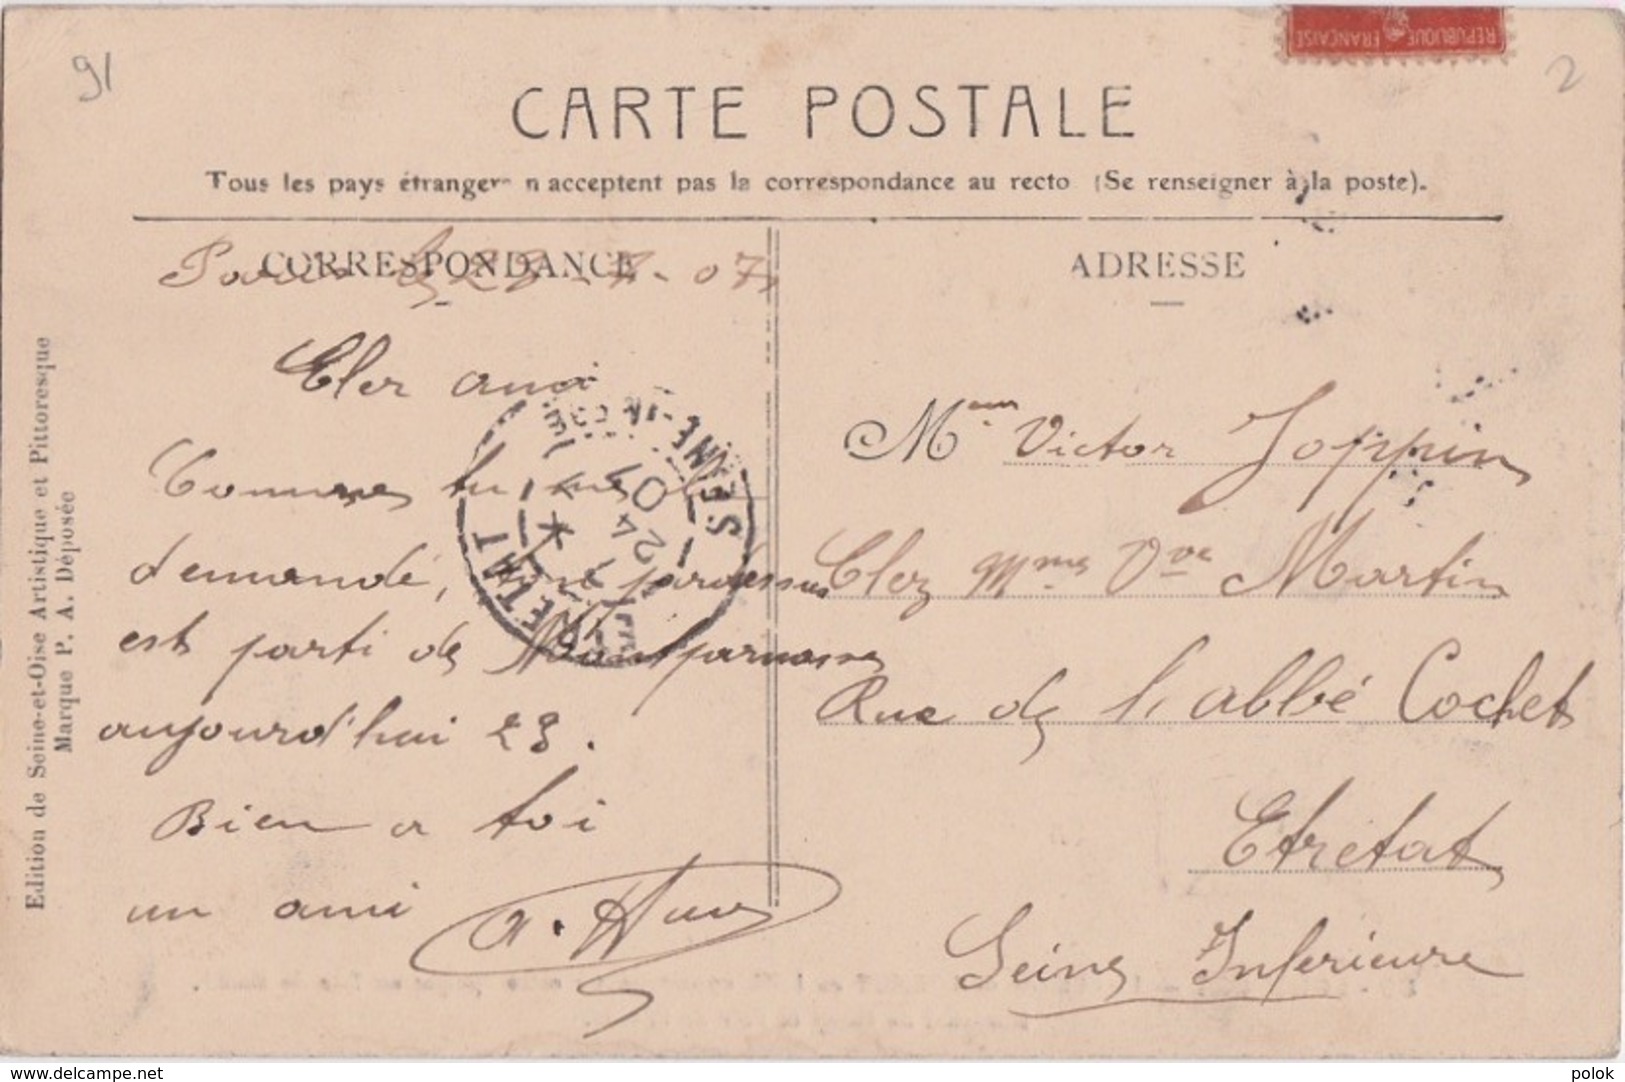 91
2
REPUBLIQUE FRANÇAISE
CARTE POSTALE
Tous les pays étrangers n'acceptent pas la correspondance au recto (Se renseigner à la poste).
CORRESPONDANCE
ADRESSE
Paris le 23-7-07
Cher ami
Comme tu me l'
demandé, ton pardessus
est parti de Montparnasse
aujourd'hui 23.
Bien a toi
un ami
Victor Joppin
Chez Mme Vve Martin
Rue de l'abbé Cochet
Etretat
Seine Inférieure
ETRETAT
SEINE-INF
24
07
Edition de Seine-et-Oise Artistique et Pittoresque
Marque P. A. Déposée
www.delcampe.net
polok